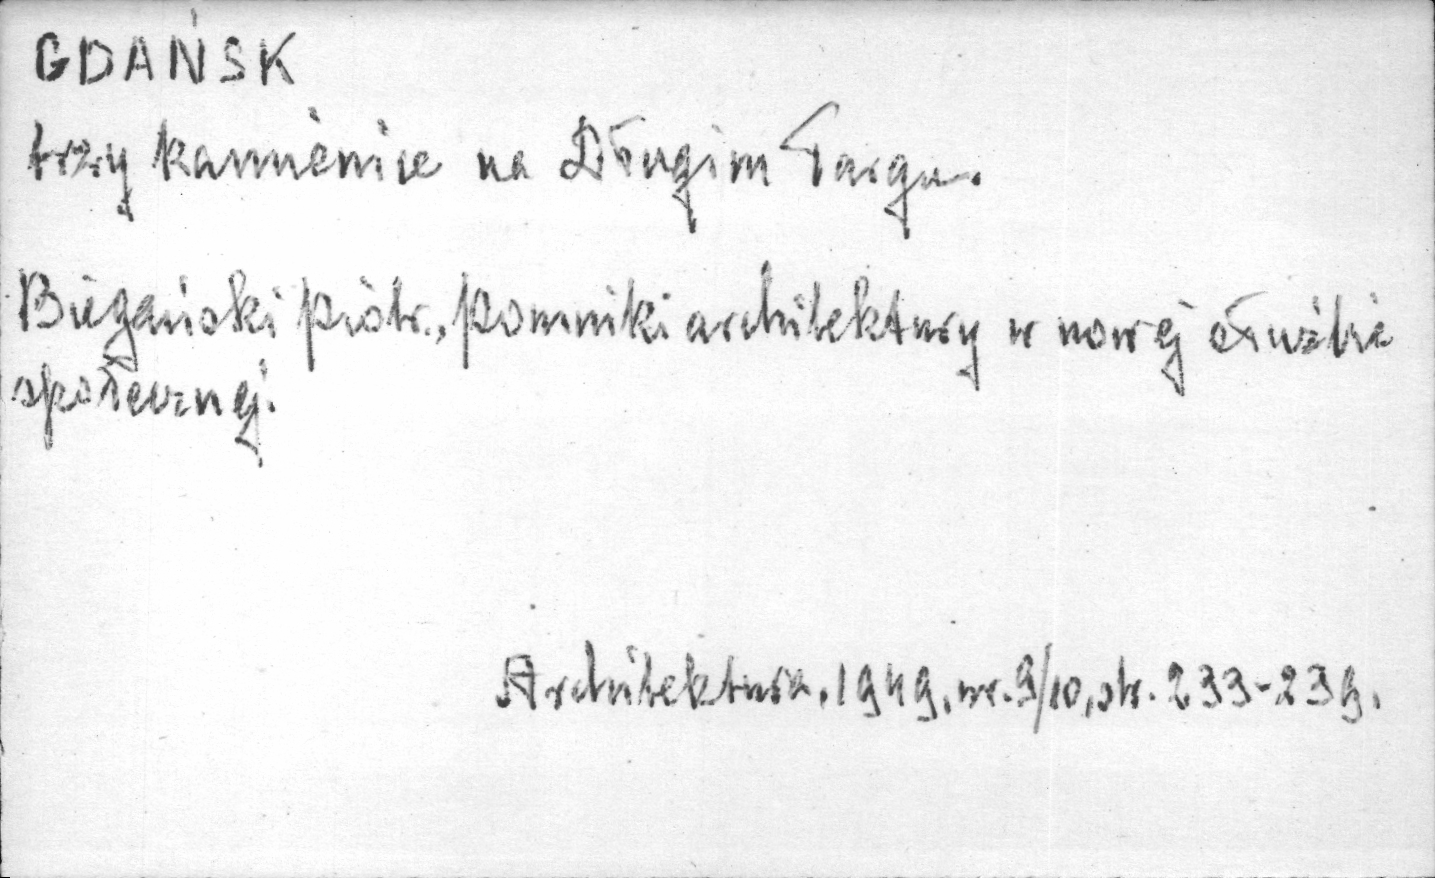 GDAŃSK
trzy kamienice na Długim Targu.
Biegański Piotr., Pomniki architektury w nowej służbie
społecznej.
Architektura. 1949, nr. 9/10, str. 233-239.